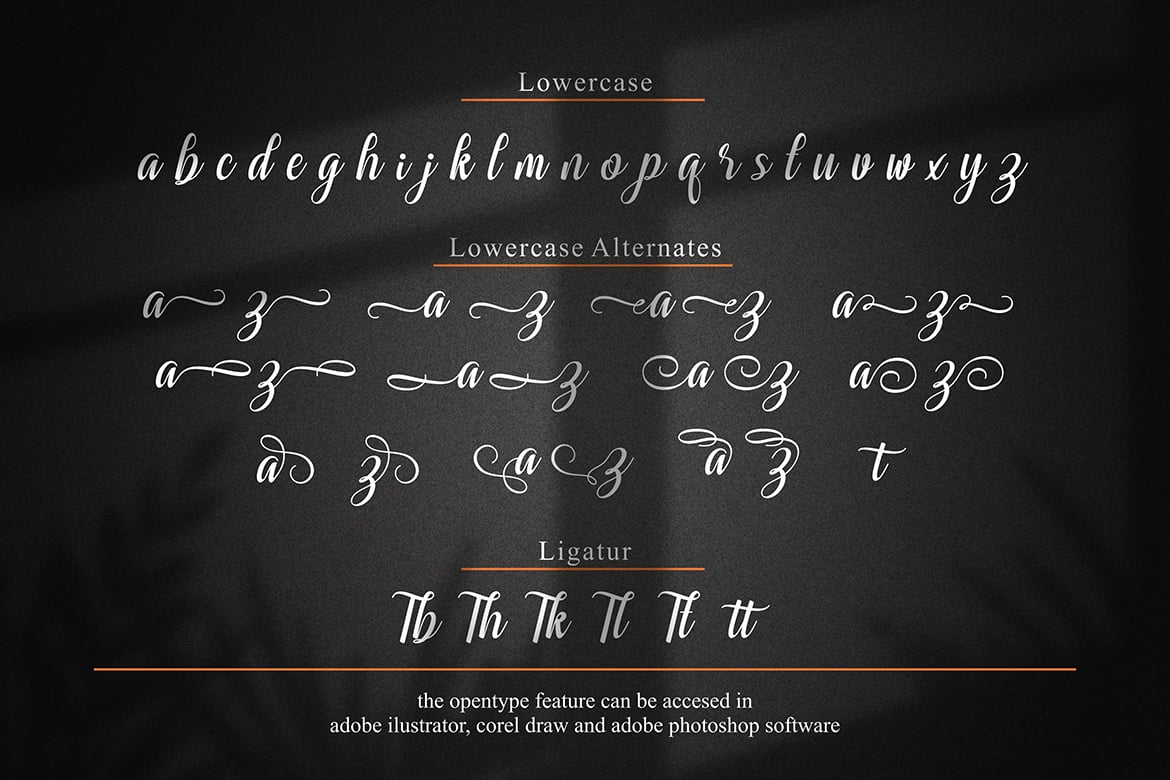 Lowercase
a b c d e g h i j k l m n o p q r s t u v w x y z
Lowercase Alternates
a z a z a z a z
a z a z a z a z
a z a z a z t
Ligatur
Tb Th Tk Tl Tt tt
the opentype feature can be accesed in
adobe ilustrator, corel draw and adobe photoshop software